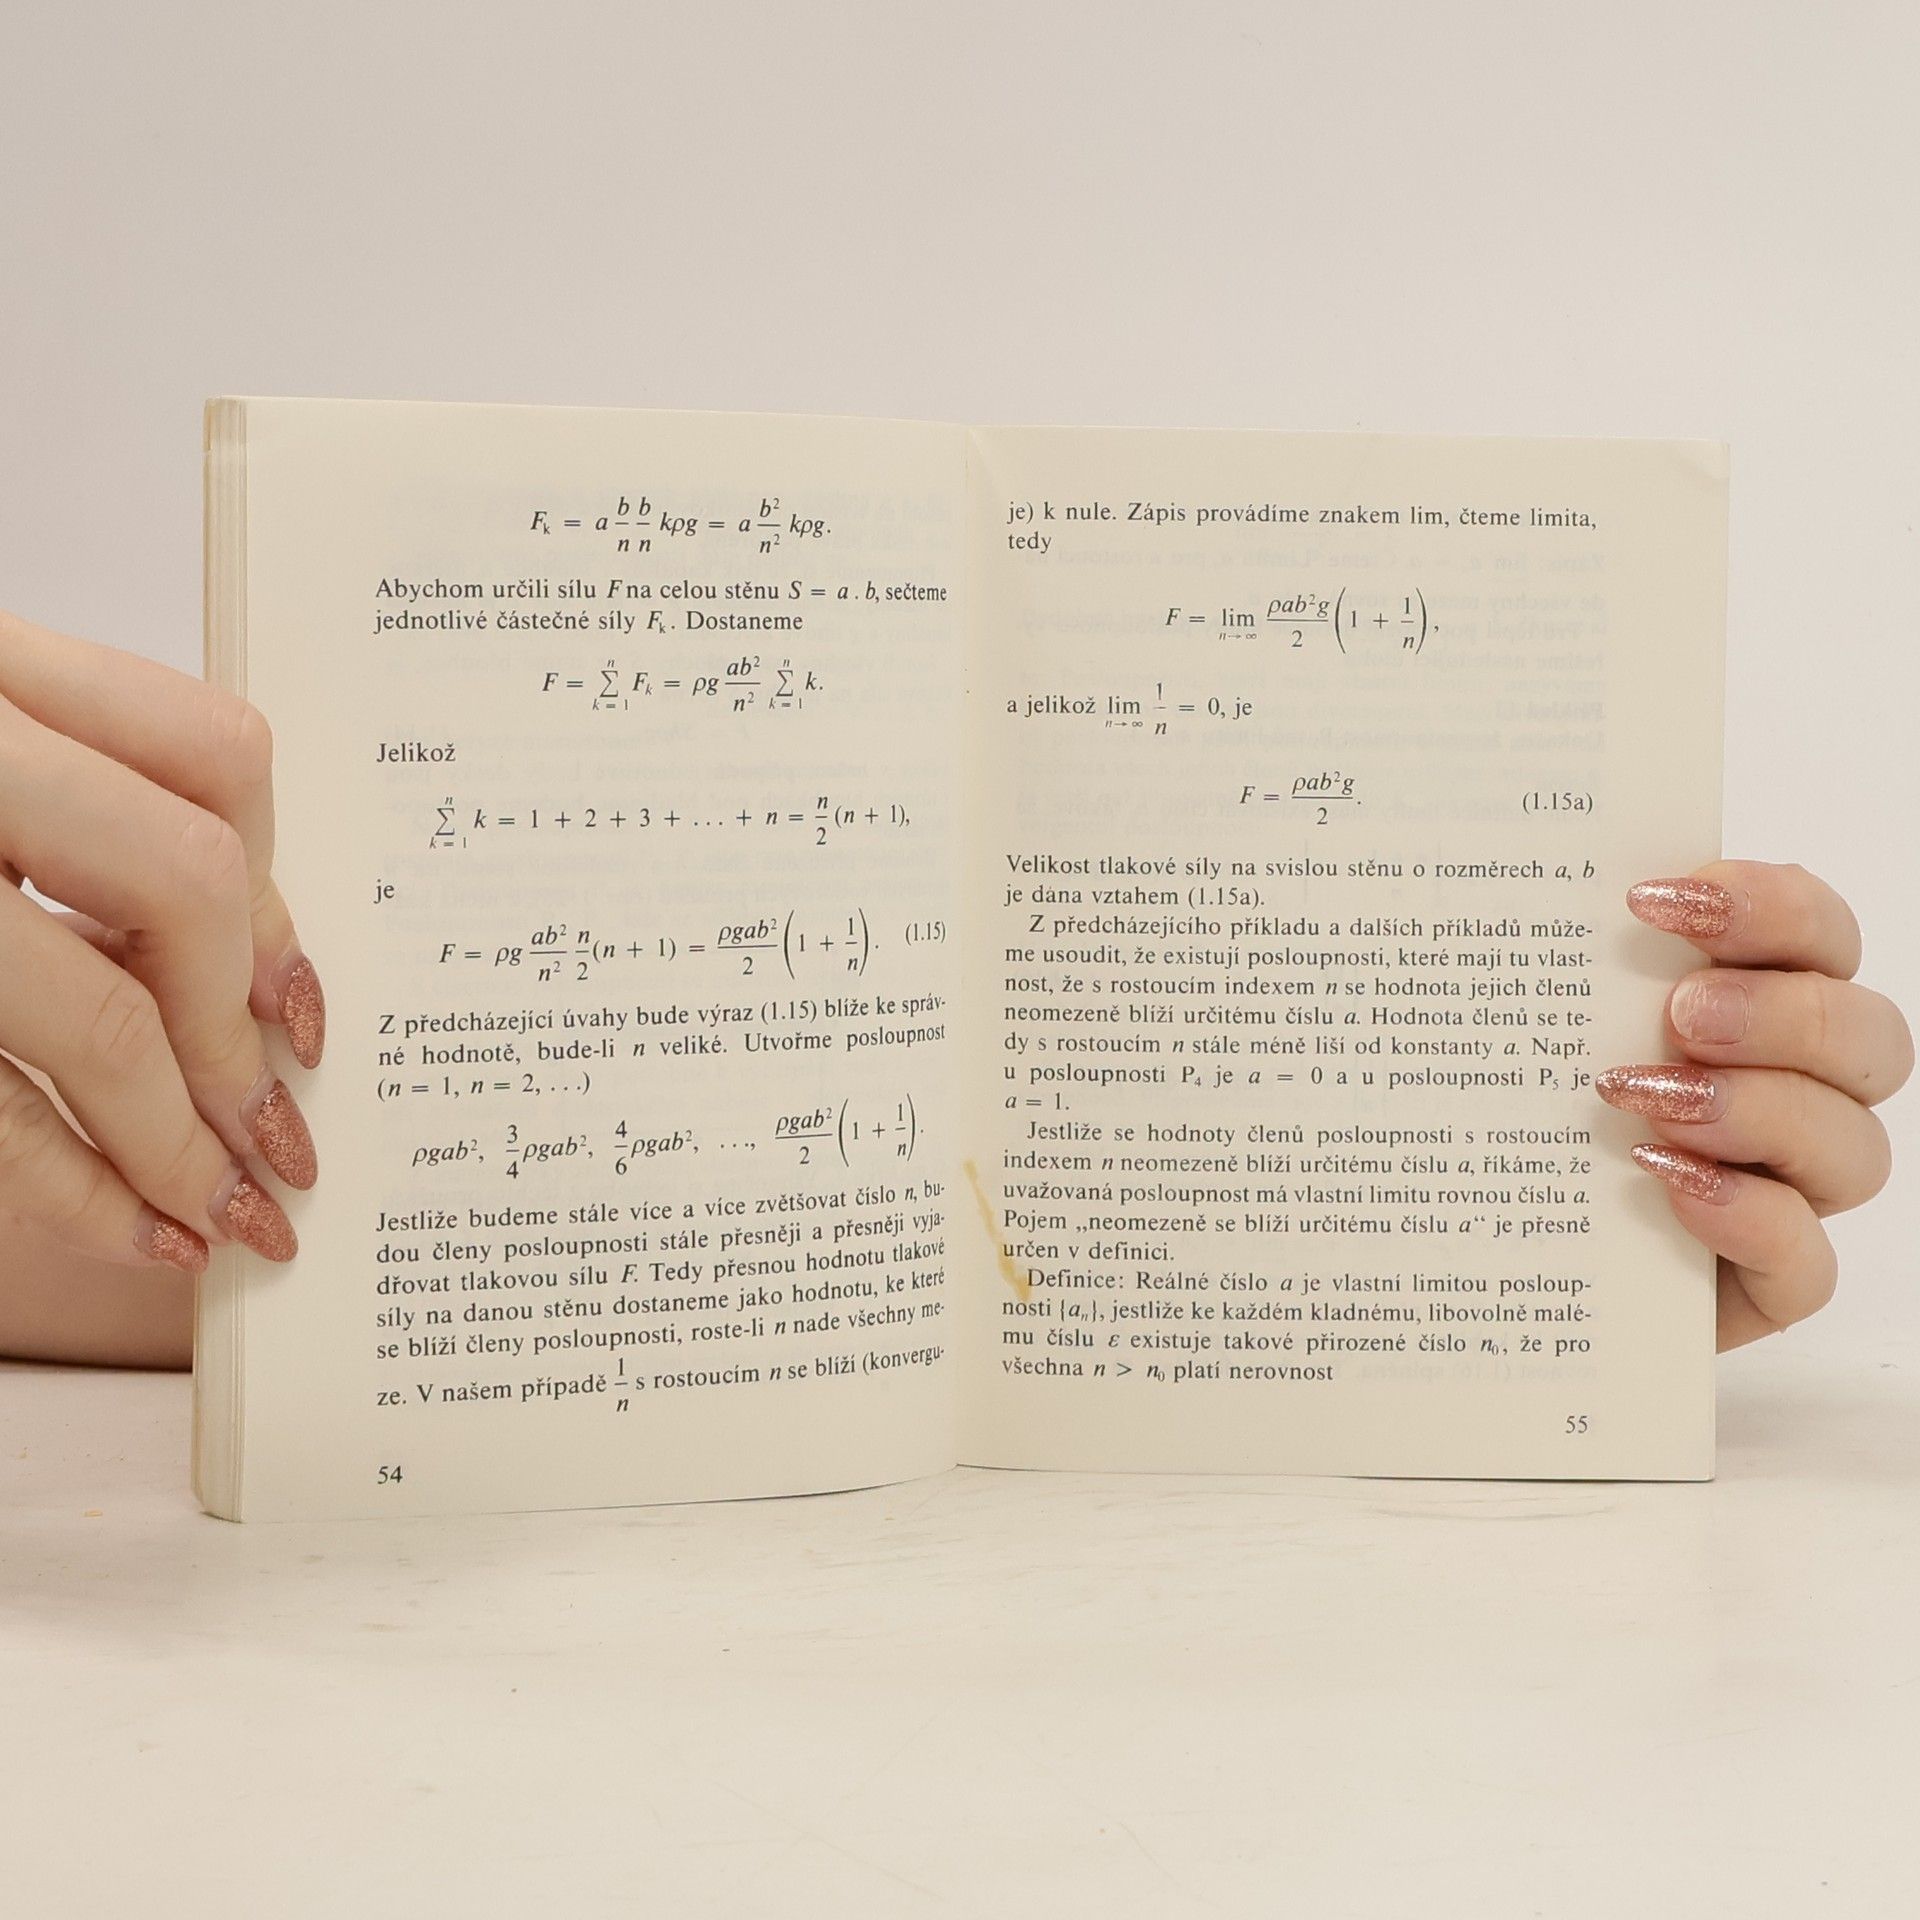 Fₖ = a b/n b/n kρg = a b²/n² kρg.
Abychom určili sílu F na celou stěnu S = a . b, sečteme
jednotlivé částečné síly Fₖ. Dostaneme
F = ∑ₖ₌₁ⁿ Fₖ = ρg ab²/n² ∑ₖ₌₁ⁿ k.
Jelikož
∑ₖ₌₁ⁿ k = 1 + 2 + 3 + ... + n = n/2 (n + 1),
je
F = ρg ab²/n² n/2 (n + 1) = ρgab²/2 (1 + 1/n). (1.15)
Z předcházející úvahy bude výraz (1.15) blíže ke správ-
né hodnotě, bude-li n veliké. Utvořme posloupnost
(n = 1, n = 2, ...)
ρgab², 3/4 ρgab², 4/6 ρgab², ..., ρgab²/2 (1 + 1/n).
Jestliže budeme stále více a více zvětšovat číslo n, bu-
dou členy posloupnosti stále přesněji a přesněji vyja-
dřovat tlakovou sílu F. Tedy přesnou hodnotu tlakové
síly na danou stěnu dostaneme jako hodnotu, ke které
se blíží členy posloupnosti, roste-li n nade všechny me-
ze. V našem případě 1/n s rostoucím n se blíží (konvergu-
54
je) k nule. Zápis provádíme znakem lim, čteme limita,
tedy
F = lim n→∞ ρab²g/2 (1 + 1/n),
a jelikož lim n→∞ 1/n = 0, je
F = ρab²g/2. (1.15a)
Velikost tlakové síly na svislou stěnu o rozměrech a, b
je dána vztahem (1.15a).
Z předcházejícího příkladu a dalších příkladů může-
me usoudit, že existují posloupnosti, které mají tu vlast-
nost, že s rostoucím indexem n se hodnota jejich členů
neomezeně blíží určitému číslu a. Hodnota členů se te-
dy s rostoucím n stále méně liší od konstanty a. Např.
u posloupnosti P₄ je a = 0 a u posloupnosti P₅ je
a = 1.
Jestliže se hodnoty členů posloupnosti s rostoucím
indexem n neomezeně blíží určitému číslu a, říkáme, že
uvažovaná posloupnost má vlastní limitu rovnou číslu a.
Pojem „neomezeně se blíží určitému číslu a“ je přesně
určen v definici.
Definice: Reálné číslo a je vlastní limitou posloup-
nosti {aₙ}, jestliže ke každém kladnému, libovolně malé-
mu číslu ε existuje takové přirozené číslo n₀, že pro
všechna n > n₀ platí nerovnost
55